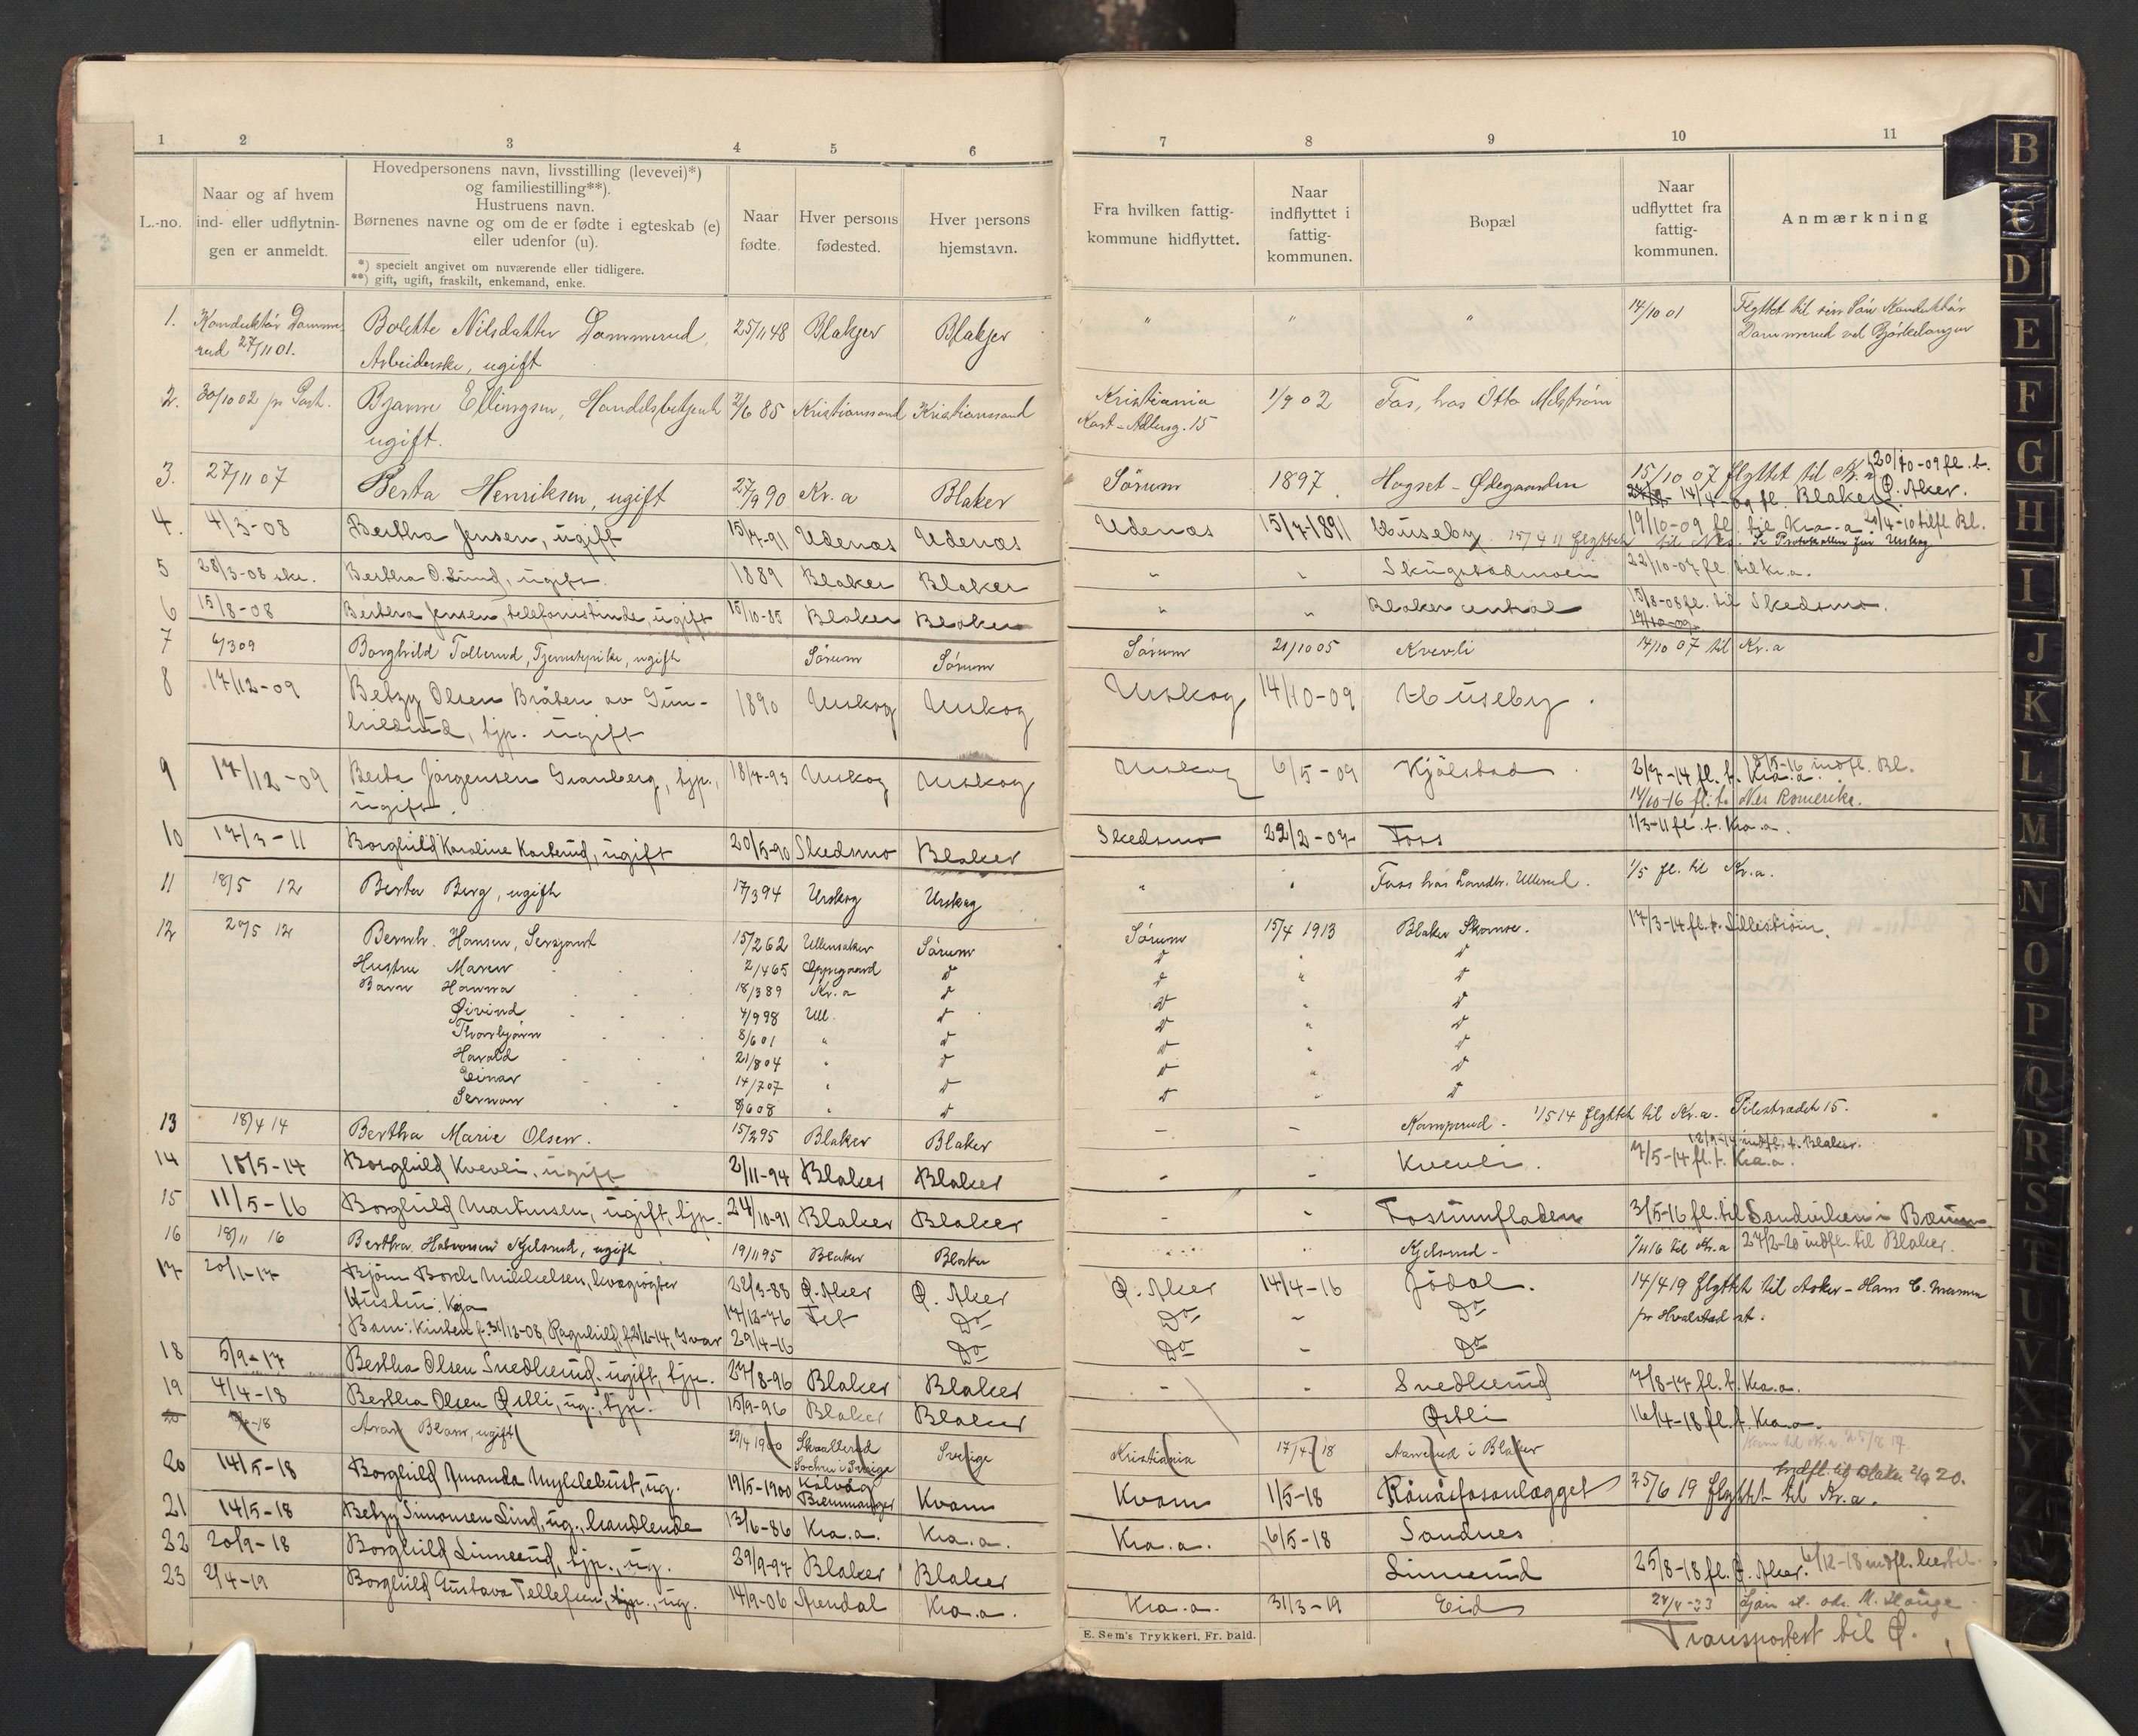 1 2 3 4 5 6 7 8 9 10 11
L.-no.
Naar og af hvem
ind- eller udflytnin-
gen er anmeldt.
Hovedpersonens navn, livsstilling (levevei)*)
og familiestilling**).
Hustruens navn.
Børnenes navne og om de er fødte i egteskab (e)
eller udenfor (u).
*) specielt angivet om nuværende eller tidligere.
**) gift, ugift, fraskilt, enkemand, enke.
Naar
fødte.
Hver persons
fødested.
Hver persons
hjemstavn.
Fra hvilken fattig-
kommune hidflyttet.
Naar
indflyttet i
fattig-
kommunen.
Bopæl
Naar
udflyttet fra
fattig-
kommunen.
Anmærkning
1. Konduktör Damme- Bolette Nilsdatter Dammerud, 25/11 48 Blakjer Blakjer " " " 14/10 01 Flyttet til sin Sön Konduktör
rud 27/11 01. Arbeiderske, ugift Dammerud ved Bjørkelangen
2. 30/10 02 pr Post. Bjarne Ellingsen, Handelsbetjent 2/6 85 Kristianssand Kristianssand Kristiania 1/9 02 Fos, hos Otto Melström
ugift. Kort-Adlersg. 15
3. 27/11 07 Berta Henriksen, ugift 27/9 90 Kr.a Blaker Sörum 1897 Hogset-Ødegaarden 15/10 07 flyttet til Kr.a 20/10-09 fl. t.
14/4-09 fl. Blaker Ø. Aker.
4. 4/3-08 Bertha Jensen, ugift 15/7-91 Udenæs Udenæs Udenæs 15/7-1891 Huseby. 15/4 11 flyttet til Nes. 19/10-09 fl. til Kra.a 20/4-10 tilfl. Bl.
Se Protokollen for Urskog
5 28/3-08 skr. Bertha O. Lund, ugift. 1889 Blaker Blaker " " Skugstadmoen 22/10-07 fl. til Kr.a.
6 15/8-08 Bertha Jensen, telefonistinde, ugift 15/10-85 Blaker Blaker " " Blaker central 15/8-08 fl. til Skedsmo.
19/10-09.
7 6/3 09 Borghild Tollerud, Tjenestepike, ugift Sörum Sörum Sörum 21/10 05 Kvevli 14/10 07 til Kr.a
8 17/12-09 Betzy Olsen Bråten av Gun- 1890 Urskog Urskog Urskog 14/10-09 Huseby.
hildrud, tjp. ugift
9 17/12-09 Berta Jörgensen Granberg, tjp., 18/7-93 Urskog Urskog Urskog 6/5-09 Kjölstad. 2/7-14 fl. t. Kra.a. 18/5-16 indfl. Bl.
ugift. 14/10-16 fl. t. Nes Romerike.
10 17/3-11 Borghild Karoline Karterud, ugift 20/5-90 Skedsmo Blaker Skedsmo 22/2-07 Foss 1/3-11 fl. t. Kra.a.
11 18/5 12 Berta Berg, ugift 17/3 94 Urskog Urskog " " Foss hos Landh. Ullerud. 1/5 fl. til Kr.a.
12 20/5 12 Bernh. Hansen, Sersjant 15/2 62 Ullensaker Sörum Sörum 15/4 1913 Blaker Skanse. 17/3-14 fl. t. Lillestrøm.
Hustru Maren 2/4 65 Oppegaard
Barn Hanna 18/3 89 Kr.a
Øivind 4/9 98 Ull.
Thorbjørn 8/6 01 "
Harald 21/8 04 "
Einar 14/7 07 "
8/6 08 "
13 18/4 14 Bertha Marie Olsen. 15/2 95 Blaker Blaker - - Kamperud. 1/5 14 flyttet til Kr.a. Pilestrædet 15.
14 18/5-14 Borghild Kvevli, ugift 2/11-94 Blaker Blaker - - Kvevli. 7/5-14 fl. t. Kra.a. 12/9-14 indfl. t. Blaker.
15 11/5-16 Borghild Martinsen, ugift, tjp. 24/10-91 Blaker Blaker - - Fossumfladen 3/5-16 fl. til Sandviken i Bærum
16 18/11 16 Bertha Halvorsen Kjelsrud, ugift 19/11 95 Blaker Blaker Kjelsrud - 1/4 16 til Kr.a 27/2-20 indfl. til Blaker.
17 20/1-17 Bjørn Borch Mikkelsen, kvægrøgter 22/3-88 Ø. Aker Ø. Aker Ø. Aker 14/4-16 Jödal. 14/4 19 flyttet til Asker - Hans C. Mamen
Hustru: Kaja 17/12-76 Fet Do Do - Do pr Hvalstad st.
Barn: Kirsten f. 31/12-08, Ragnhild, f. 2/6-14, Ivar 29/4-16 Do Do - Do
18 5/9-17 Bertha Olsen Snedkerud, ugift, tjp. 27/8-96 Blaker Blaker - - Snedkerud 7/8-17 fl. t. Kra.a.
19 4/4-18 Bertha Olsen Østli, ug., tjp. 15/9-96 Blaker Blaker Østli 16/4-18 fl. t. Kra.a.
20 Blom, ugift 29/4 1900 Sverige Kristiania 17/4 18 i Blaker
20 14/5-18 Borghild Amanda Myklebust, ug. 19/5-1900 Kalvåg Bremmanger Kvam Kvam 1/5-18 Rånåsfosanlægget 25/6 19 flyttet til Kr.a. Indfl. til Blaker 2/9 20.
21 14/5-18 Betzy Simonsen Lind, ug., handlende 13/6-86 Kra.a. Kra.a. Kra.a. 6/5-18 Sandnes
22 20/9-18 Borghild Linnerud, tjp., ug. 29/9-97 Blaker Blaker Linnerud 25/8-18 fl. Ø. Aker. 6/12-18 indfl. hertil.
23 2/4-19 Borghild Gustava Tellefsen, tjp., ug. 14/9-06 Arendal Kra.a. Kra.a. 31/3-19 Eid Ljan st. adr. M. Hauge
E. Sem's Trykkeri, Fr.hald.
Transportert til Ø.
B
C
D
E
F
G
H
I
J
K
L
M
N
O
P
Q
R
S
T
U
V
X
Y
Z